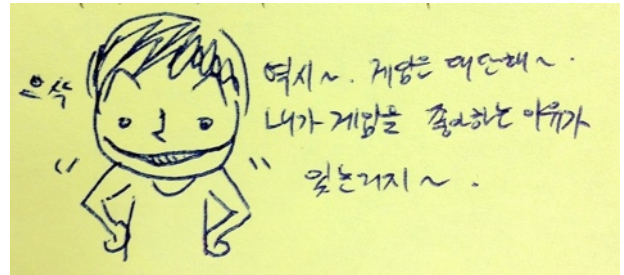 으쓱
역시~. 게임은 대단해~.
내가 게임을 좋아하는 이유가
있는거지~.